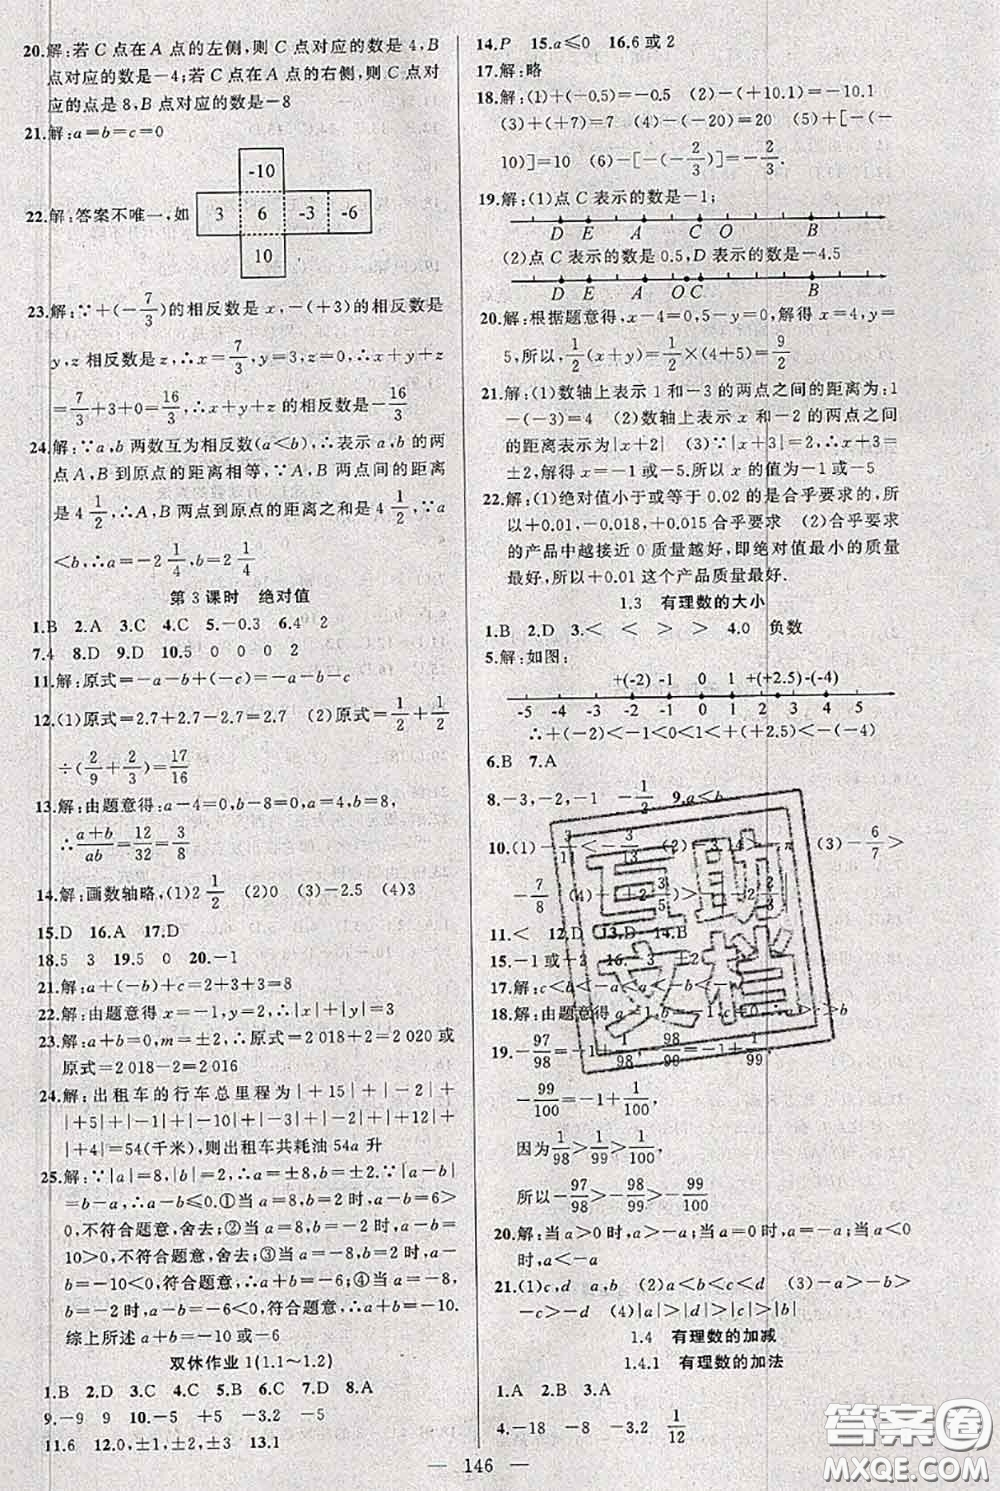 20.解:若C点在A点的左侧,则C点对应的数是4,B
点对应的数是-4;若C点在A点的右侧,则C点对
应的点是8,B点对应的数是-8
21.解:a=b=c=0
22.解:答案不唯一,如
-10
3 6 -3 -6
10
23.解:∵+(-7/3)的相反数是x,-(+3)的相反数是
y,z相反数是z,∴x=7/3,y=3,z=0,∴x+y+z
=7/3+3+0=16/3,∴x+y+z的相反数是-16/3
24.解:∵a,b两数互为相反数(a<b),∴表示a,b的两
点A,B到原点的距离相等,∵A,B两点间的距离
是4 1/2,∴A,B两点到原点的距离之和是4 1/2,∵a
<b,∴a=-2 1/4,b=2 1/4
第3课时 绝对值
1.B 2.A 3.C 4.C 5.-0.3 6.4 2
7.4 8.D 9.D 10.5 0 0 0 2
11.解:原式=-a-b+(-c)=-a-b-c
12.(1)原式=2.7+2.7-2.7=2.7 (2)原式=1/2+1/2
÷(2/9+2/3)=17/16
13.解:由题意得:a-4=0,b-8=0,∴a=4,b=8,
∴a+b/ab=12/32=3/8
14.解:画数轴略,(1)2 1/2 (2)0 (3)-2.5 (4)3
15.D 16.A 17.D
18.5 3 19.5 0 20.-1
21.解:a+(-b)+c=2+3+3=8
22.解:由题意得x=-1,y=2,∴|x|+|y|=3
23.解:a+b=0,m=±2,∴原式=2018+2=2020或
原式=2018-2=2016
24.解:出租车的行车总里程为|+15|+|-2|+
|+5|+|-1|+|-10|+|-3|+|-2|+|+12|+
|+4|=54(千米),则出租车共耗油54a升
25.解:∵|a|=8,|b|=2,∴a=±8,b=±2.∵|a-b|
=b-a,∴a-b≤0.①当a=8,b=2时,a-b=6>
0,不符合题意,舍去;②当a=8,b=-2时,a-b=
10>0,不符合题意,舍去;③当a=-8,b=2时,a-
b=-10<0,符合题意;④当a=-8,b=-2时,
a-b=-6<0,符合题意,∴a+b=-6,∴a+b=-10.
综上所述a+b=-10或-6
双休作业1(1.1~1.2)
1.B 2.D 3.D 4.C 5.B 6.D 7.D 8.A
9.-9 9 10.-5 +5 -3.2 -5
11.6 12.0,±1,±2,±3 13.1
14.P 15.a≤0 16.6或2
17.解:略
18.解:(1)+(-0.5)=-0.5 (2)-(+10.1)=-10.1
(3)+(+7)=7 (4)-(-20)=20 (5)+[-(-
10)]=10 (6)-[-(-2/3)]=-2/3.
19.解:(1)点C表示的数是-1;
D E A C O B
(2)点C表示的数是0.5,D表示的数是-4.5
D E A O C B
20.解:根据题意得,x-4=0,5-y=0,解得x=4,y=
5,所以,1/2(x+y)=1/2×(4+5)=9/2
21.解:(1)数轴上表示1和-3的两点之间的距离为:1
-(-3)=4 (2)数轴上表示x和-2的两点之间
的距离表示为|x+2| (3)∵|x+3|=2,∴x+3=
±2,解得x=-1或-5.所以x的值为-1或-5
22.解:(1)绝对值小于或等于0.02的是合乎要求的,所
以+0.01,-0.018,+0.015合乎要求 (2)合乎要求
的产品中越接近0质量越好,即绝对值最小的质量
最好,所以+0.01这个产品质量最好.
1.3 有理数的大小
1.B 2.D 3.< < > > 4.0 负数
5.解:如图:
+(-2) -1 0 1 +(+2.5) -(-4)
-5 -4 -3 -2 -1 0 1 2 3 4 5
∴+(-2)<-1<0<1<+(+2.5)<-(-4)
6.B 7.A
8.-3,-2,-1 -1/2 9.a<b
11.< 12.D 13.D 14.B
17.解:c<b<-a<a<-b<-c
19.-97/98=-1+1/98,-98/99=-1+1/99,
-99/100=-1+1/100,
因为1/98>1/99>1/100,
所以-97/98>-98/99>-99/100
20.解:当a>0时,a>-a;当a=0时,a=-a;当a<0
时,a<-a
21.(1)c,d a,b (2)a<b<c<d (3)-a>-b>
-c>-d (4)|a|>|d|>|c|>|b|
1.4 有理数的加减
1.4.1 有理数的加法
1.A 2.B 3.A
4.-18 -8 -3.2 1/12
— 146 —
互助文档
答案圈
MXQE.COM